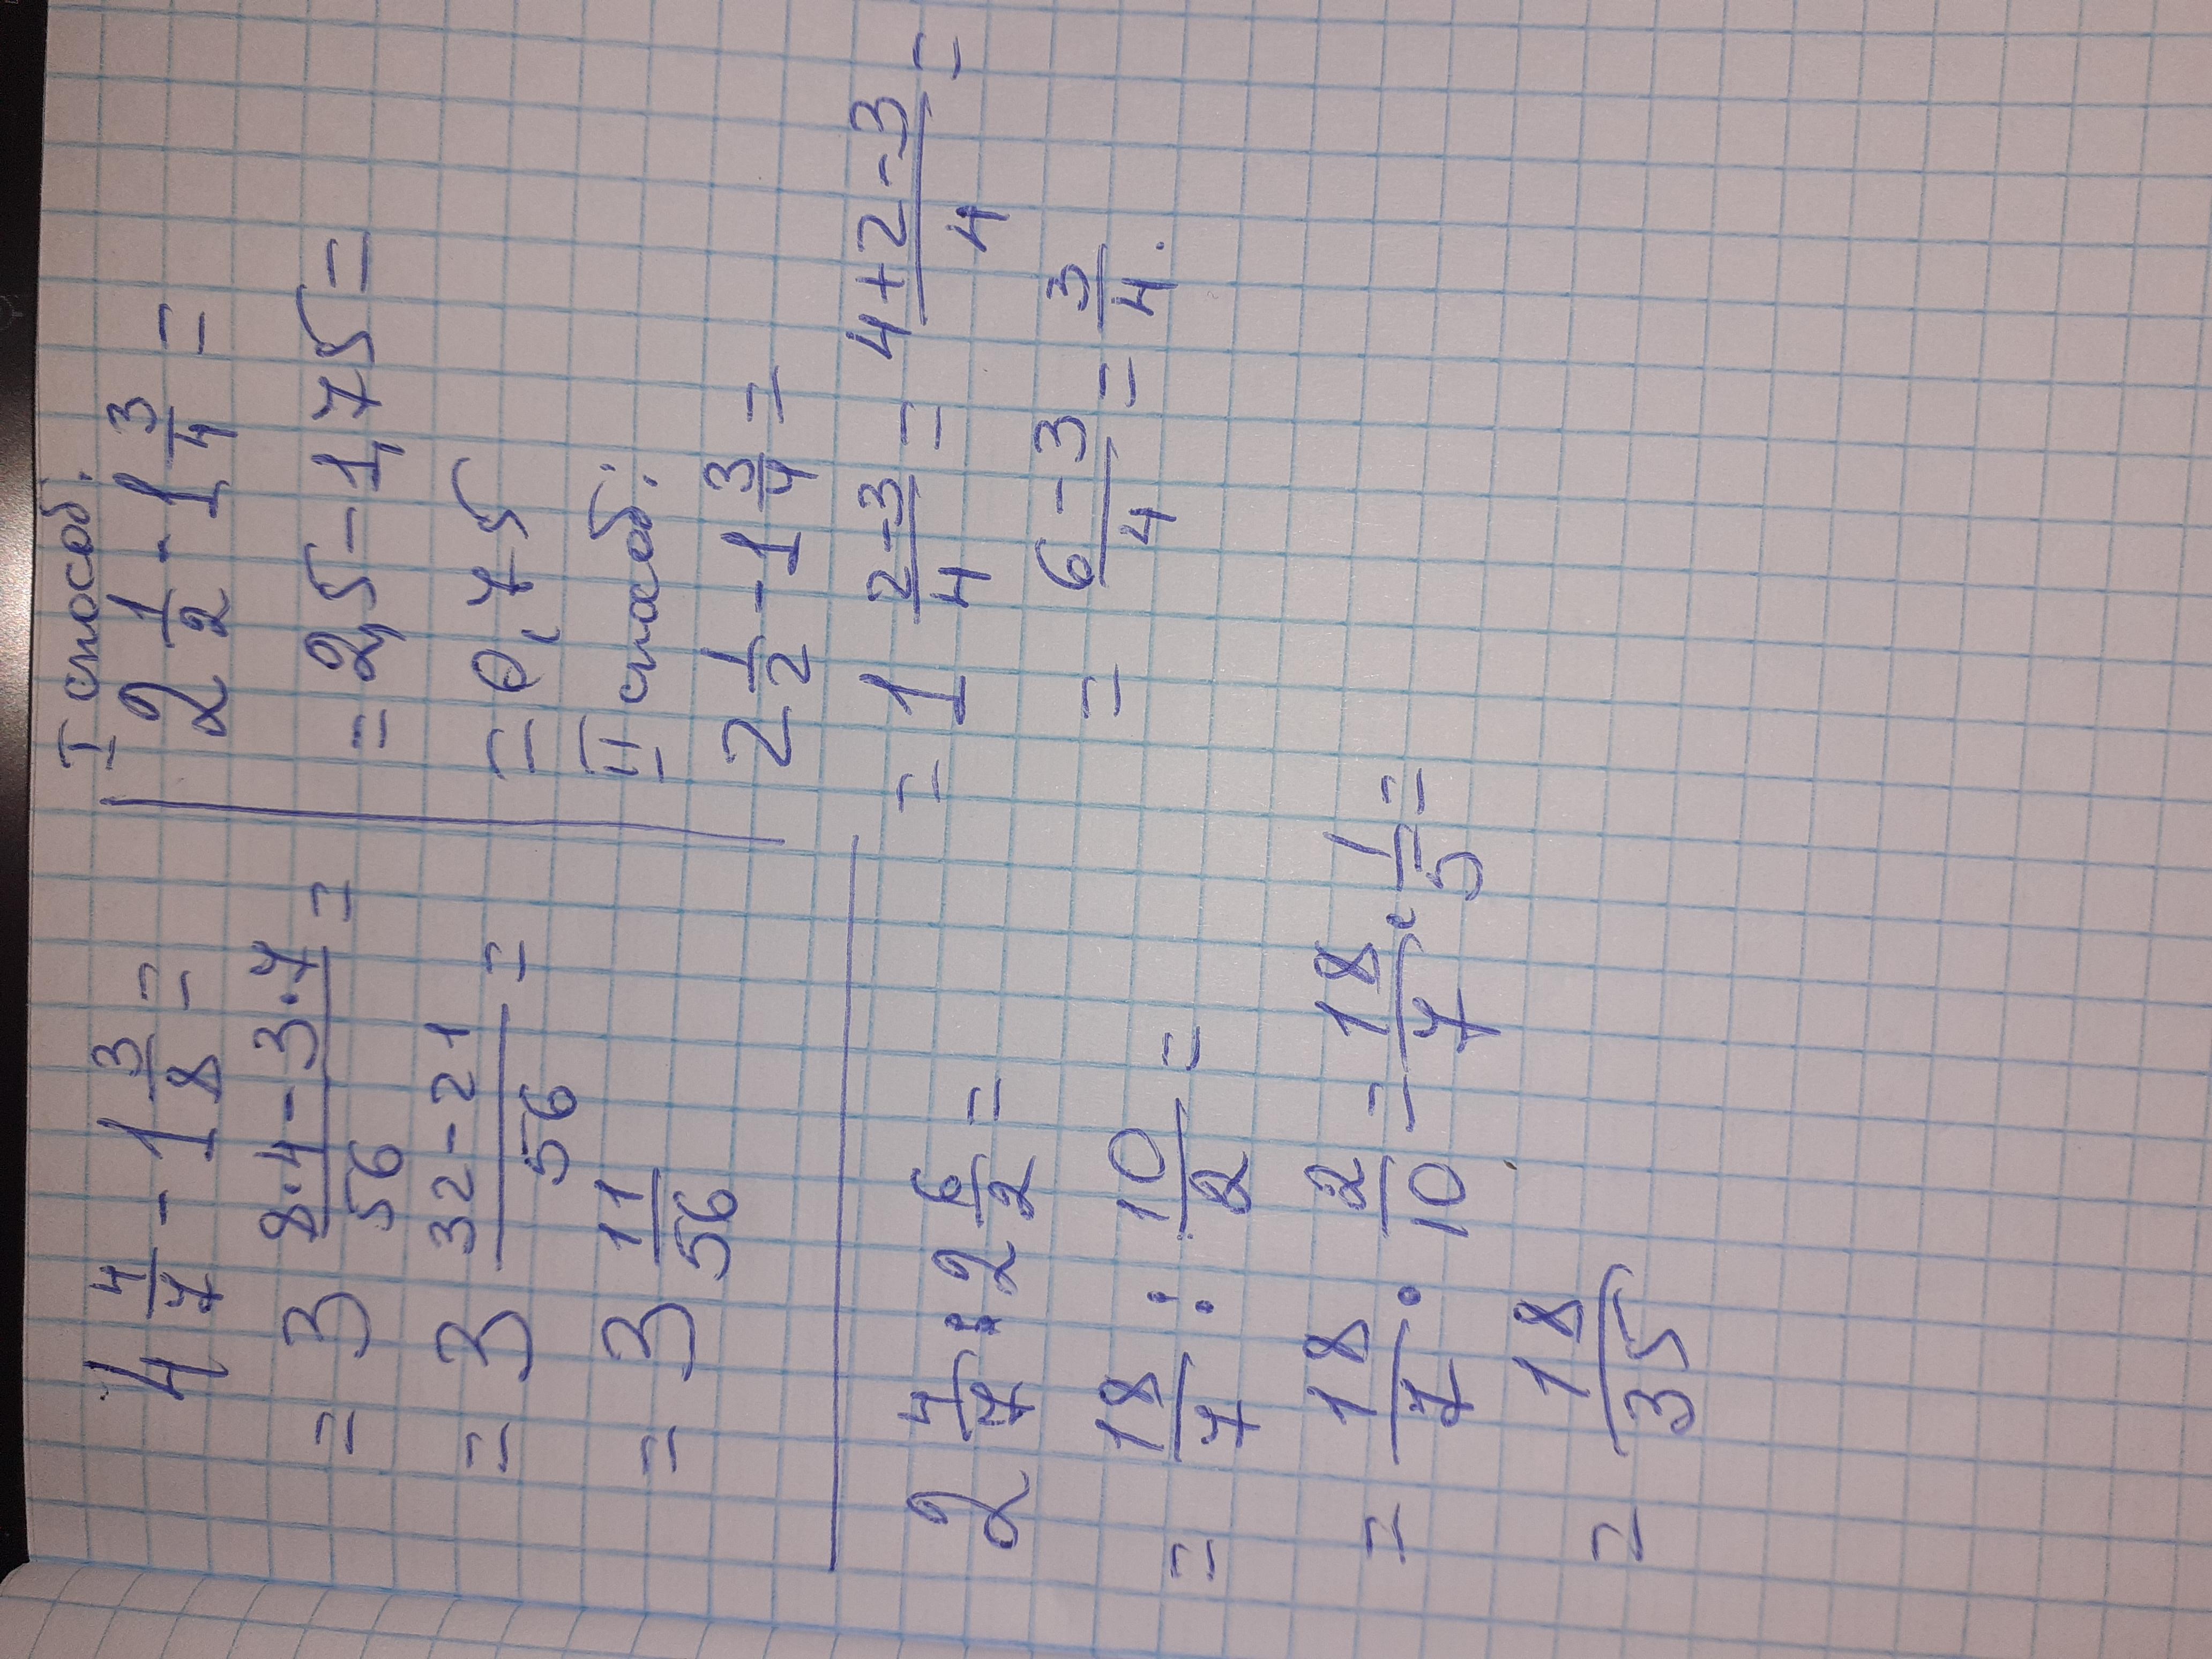 4 4/7 - 1 3/8 =
= 3 (8·4 - 3·7)/56 =
= 3 (32 - 21)/56 =
= 3 11/56
I способ:
2 1/2 - 1 3/4 =
= 2,5 - 1,75 =
= 0,75
II способ:
2 1/2 - 1 3/4 =
= 1 (2 - 3)/4 = (4 + 2 - 3)/4 =
= (6 - 3)/4 = 3/4.
2 4/7 : 2 6/2 =
= 18/7 : 10/2 =
= 18/7 · 2/10 = 18/7 · 1/5 =
= 18/35